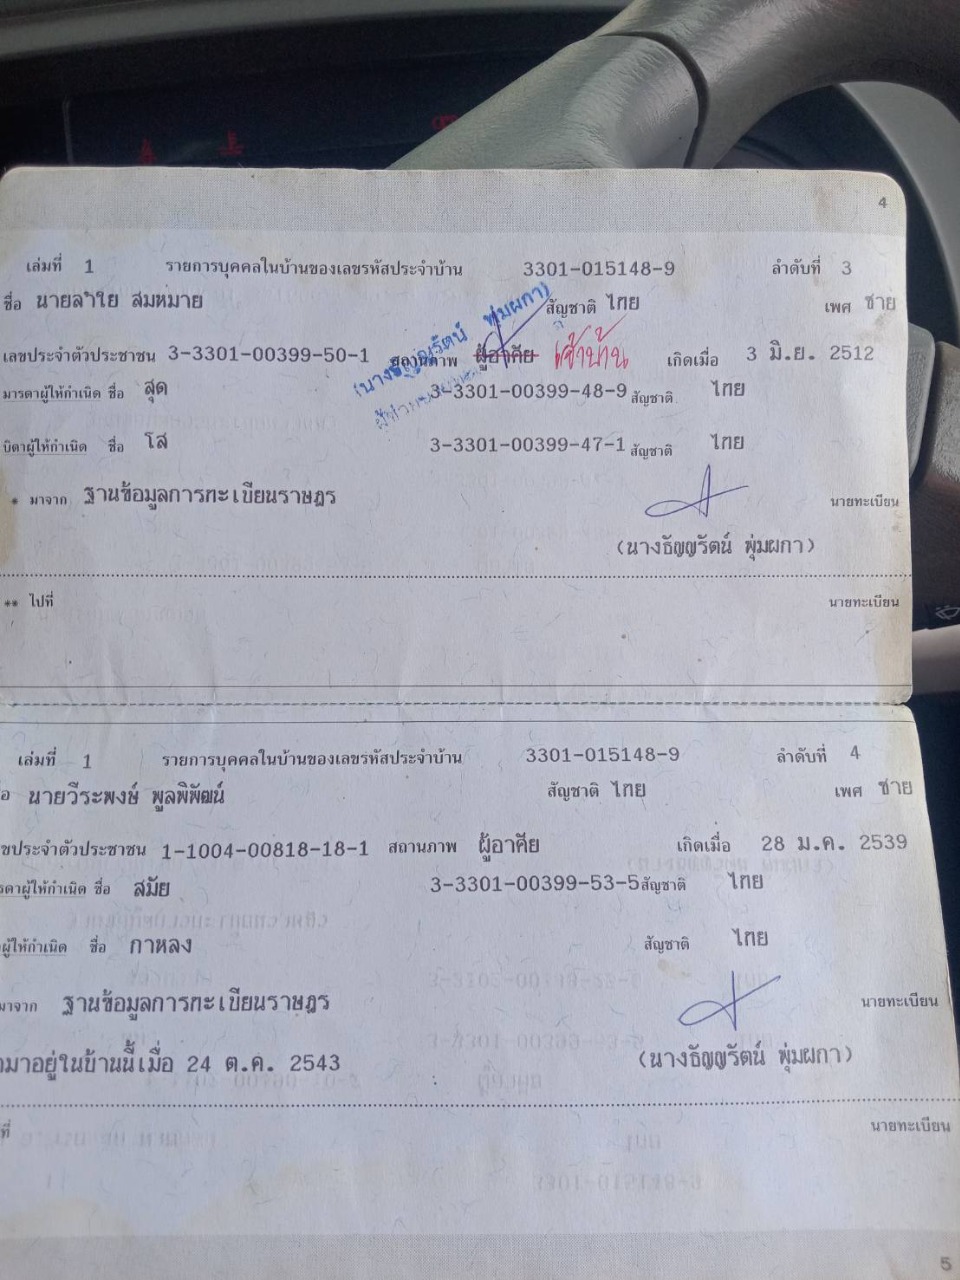 4
เล่มที่ 1 รายการบุคคลในบ้านของเลขรหัสประจำบ้าน 3301-015148-9 ลำดับที่ 3
ชื่อ นายลำใย สมหมาย สัญชาติ ไทย เพศ ชาย
(นางธัญญรัตน์ พุ่มผกา)
เลขประจำตัวประชาชน 3-3301-00399-50-1 สถานภาพ ผู้อาศัย เจ้าบ้าน เกิดเมื่อ 3 มิ.ย. 2512
มารดาผู้ให้กำเนิด ชื่อ สุด 3-3301-00399-48-9 สัญชาติ ไทย
บิดาผู้ให้กำเนิด ชื่อ โส 3-3301-00399-47-1 สัญชาติ ไทย
* มาจาก ฐานข้อมูลการทะเบียนราษฎร นายทะเบียน
(นางธัญญรัตน์ พุ่มผกา)
** ไปที่ นายทะเบียน
เล่มที่ 1 รายการบุคคลในบ้านของเลขรหัสประจำบ้าน 3301-015148-9 ลำดับที่ 4
อ นายวีระพงษ์ พูลพิพัฒน์ สัญชาติ ไทย เพศ ชาย
ขประจำตัวประชาชน 1-1004-00818-18-1 สถานภาพ ผู้อาศัย เกิดเมื่อ 28 ม.ค. 2539
รดาผู้ให้กำเนิด ชื่อ สมัย 3-3301-00399-53-5 สัญชาติ ไทย
ผู้ให้กำเนิด ชื่อ กาหลง สัญชาติ ไทย
มาจาก ฐานข้อมูลการทะเบียนราษฎร นายทะเบียน
ามาอยู่ในบ้านนี้เมื่อ 24 ต.ค. 2543 (นางธัญญรัตน์ พุ่มผกา)
ที่ นายทะเบียน
5